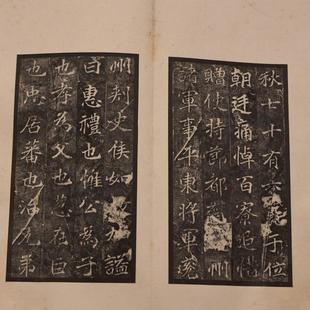 秋七十有六薨于位
朝廷痛悼百寮追惜
贈使持節都 州
諸軍事冬東將軍兗
州刺史侯如 謚
曰惠禮也惟公為子
也孝為父也慈在臣
也忠居蕃也治兄弟